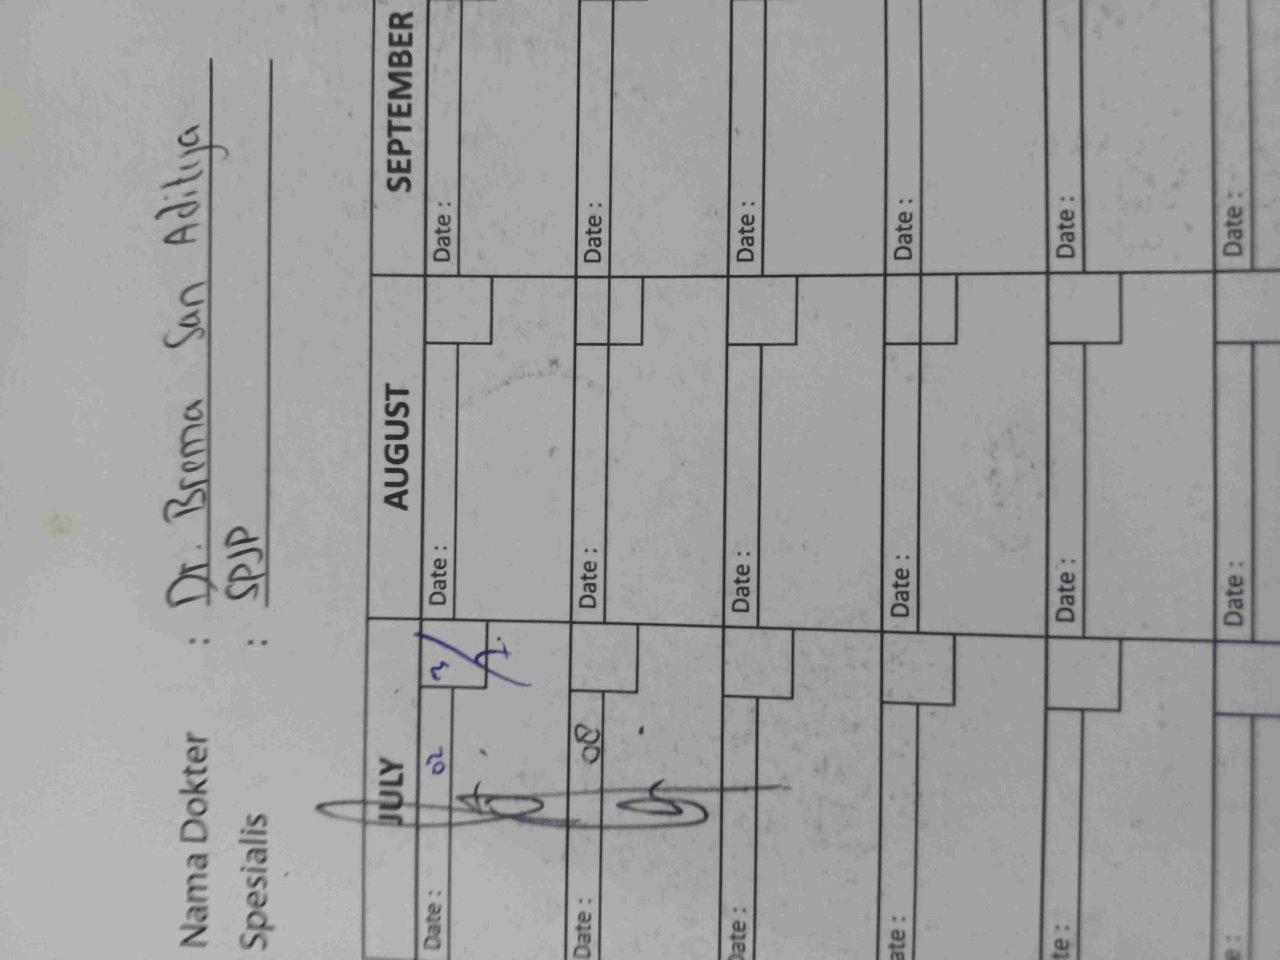 Nama Dokter : Dr. Brema San Aditya
Spesialis : SPJP
JULY AUGUST SEPTEMBER
Date : 02 3/ Date : Date :
Date : 08 Date : Date :
Date : Date : Date :
ate : Date : Date :
te : Date : Date :
e : Date : Date :